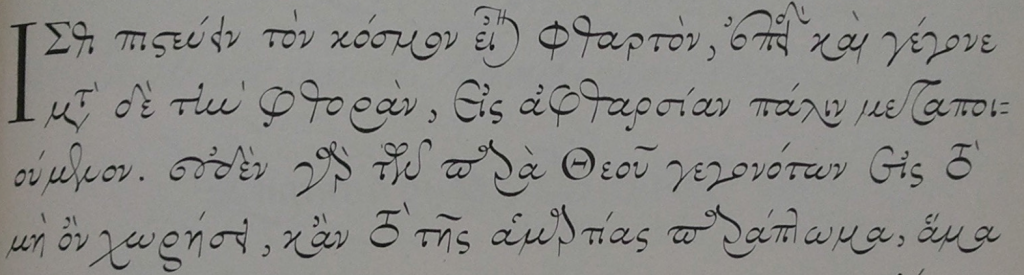 πιστεύειν τὸν κόσμον φθαρτὸν, καὶ γέγονε
μετὰ δὲ τὴν φθορὰν, εἰς ἀφθαρσίαν πάλιν μεταποι=
ούμενον. οὐδὲν γὰρ τῶν παρὰ Θεοῦ γεγονότων εἰς τὸ
μὴ ὂν χωρήσει, κἂν τὸ τῆς ἁμαρτίας παράπτωμα, ἅμα